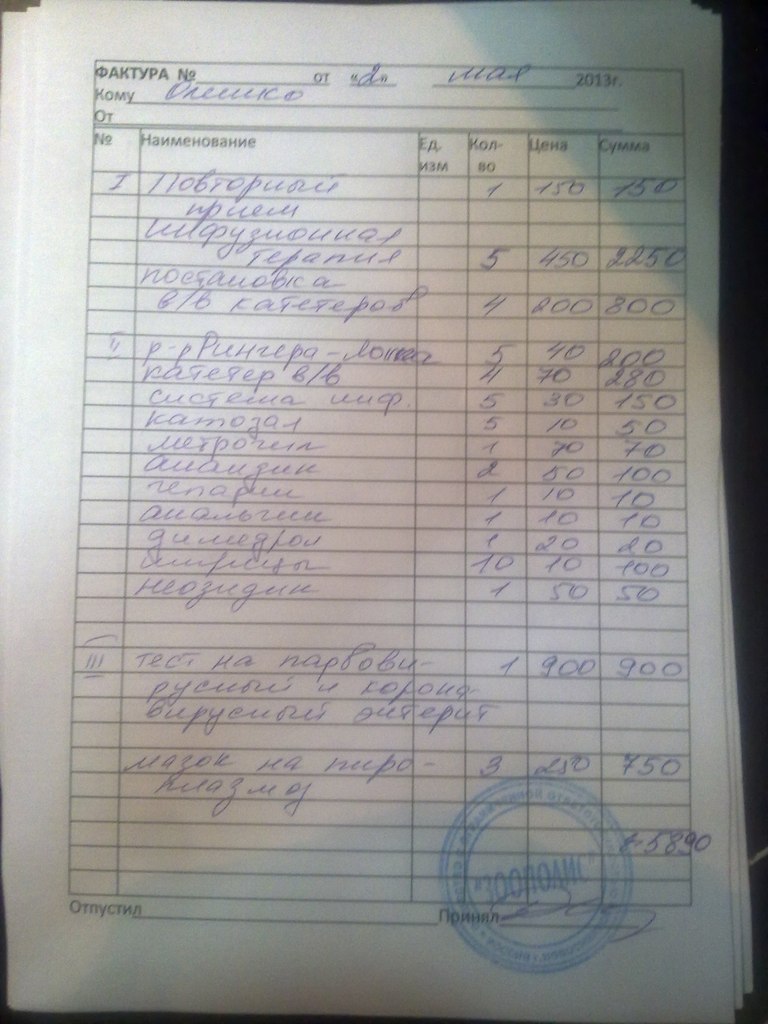 ФАКТУРА № от «2» мая 2013г.
Кому
От
№ Наименование Ед. изм Кол-во Цена Сумма
I Повторный 1 150 150
прием
инфузионная
терапия 5 450 2250
постановка
в/в катетеров 4 200 800
II р-р Рингера-Локка 5 40 200
катетер в/в 4 70 280
система инф. 5 30 150
катозал 5 10 50
метрогил 1 70 70
2 50 100
гепарин 1 10 10
анальгин 1 10 10
димедрол 1 20 20
шприцы 10 10 100
неозидин 1 50 50
III тест на парвови- 1 900 900
русный и корона-
вирусный энтерит
мазок на пиро- 3 250 750
плазмоз
5890
"ЗООПОЛИС"
Отпустил Принял